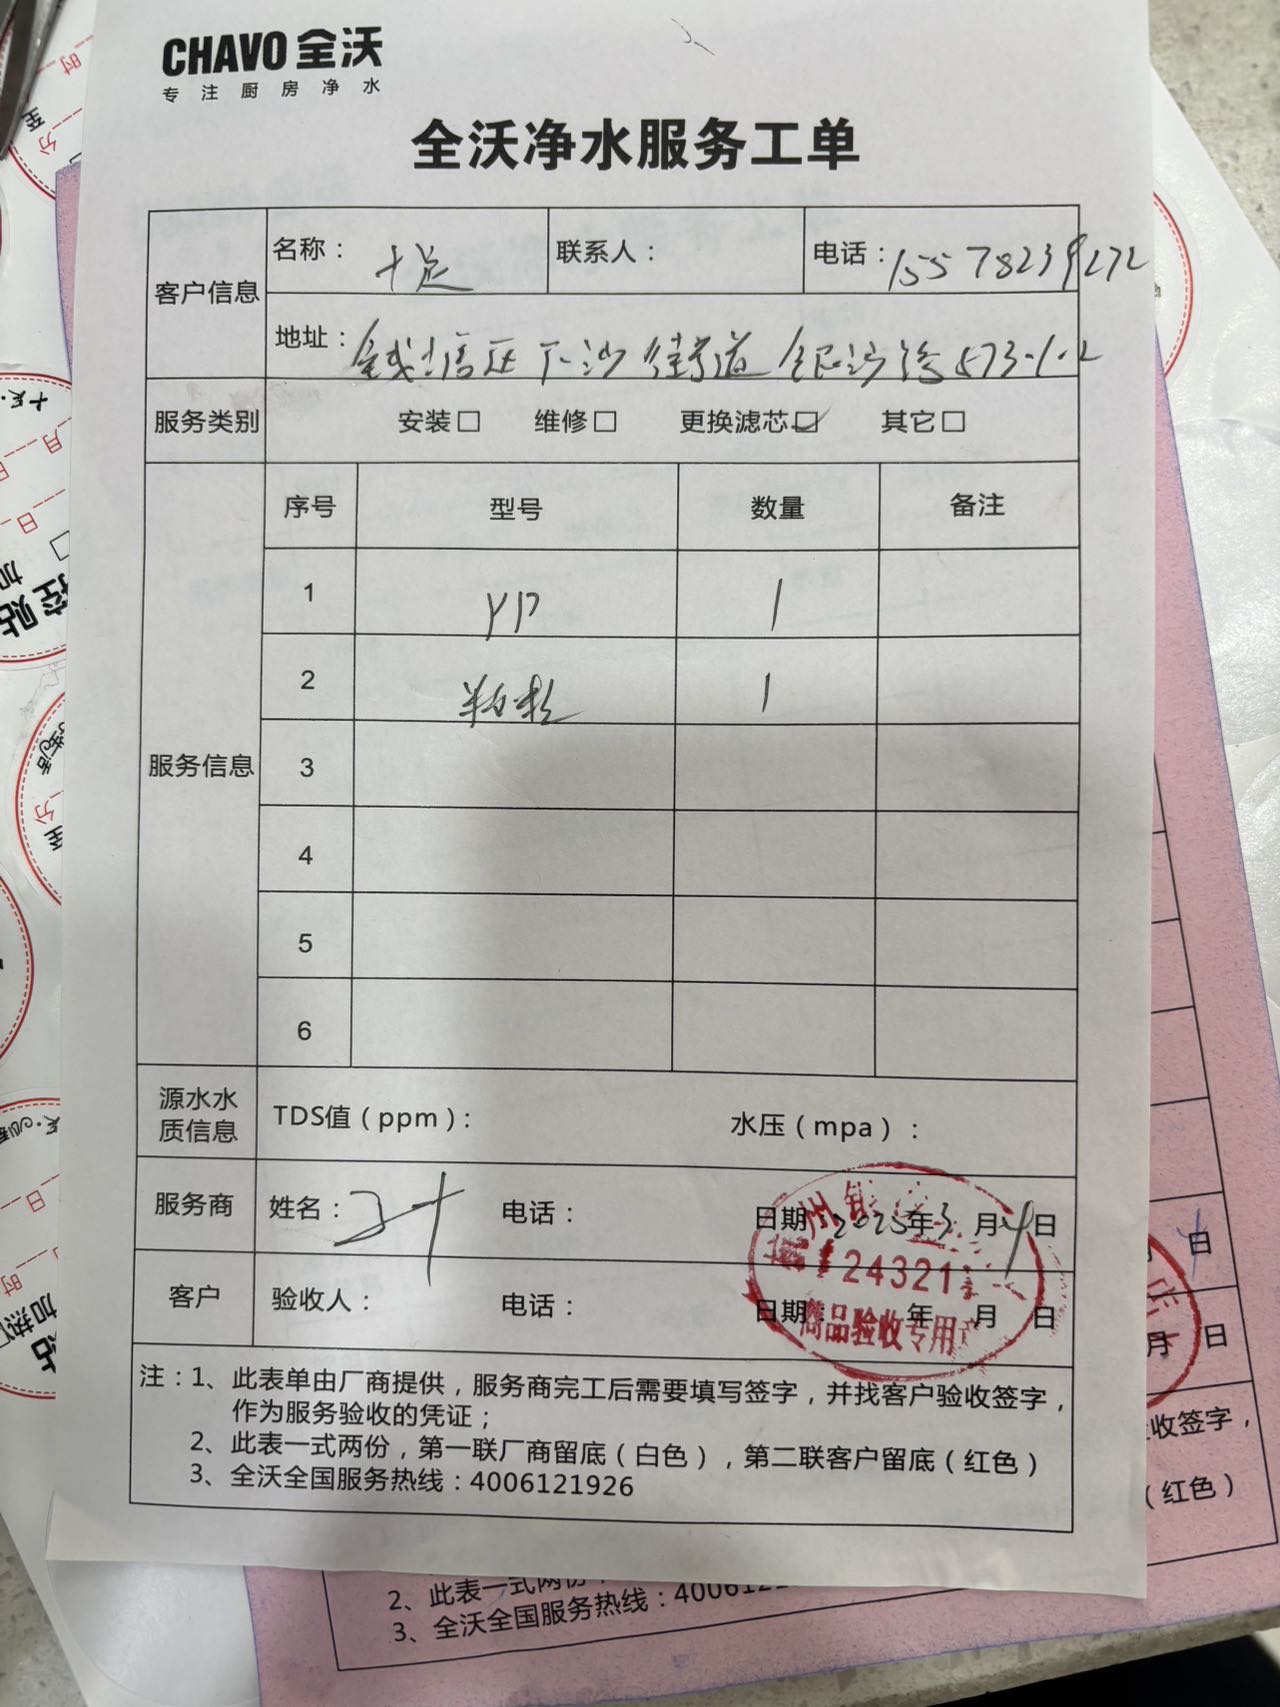 CHAVO 全沃
专注厨房净水
全沃净水服务工单
客户信息
名称： 十足
联系人：
电话：15578239272
地址： 钱塘区下沙街道银沙路573-1-2
服务类别 安装□ 维修□ 更换滤芯☑ 其它□
服务信息
序号 型号 数量 备注
1 YP 1
2 1
3
4
5
6
源水水质信息 TDS值（ppm）： 水压（mpa）：
服务商 姓名： 电话： 日期：2025年3月4日
客户 验收人： 电话： 日期： 年 月 日
24321
商品验收专用
注：1、此表单由厂商提供，服务商完工后需要填写签字，并找客户验收签字，
作为服务验收的凭证；
2、此表一式两份，第一联厂商留底（白色），第二联客户留底（红色）
3、全沃全国服务热线：4006121926
日
月 日
收签字，
（红色）
2、此表一式两份
3、全沃全国服务热线：4006121